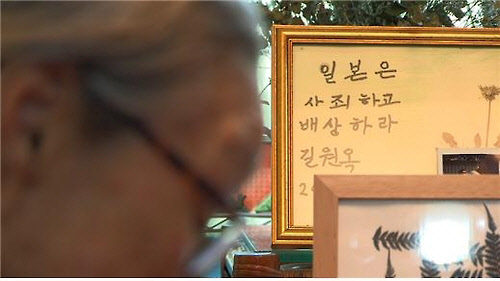 일본은
사죄하고
배상하라
길원옥